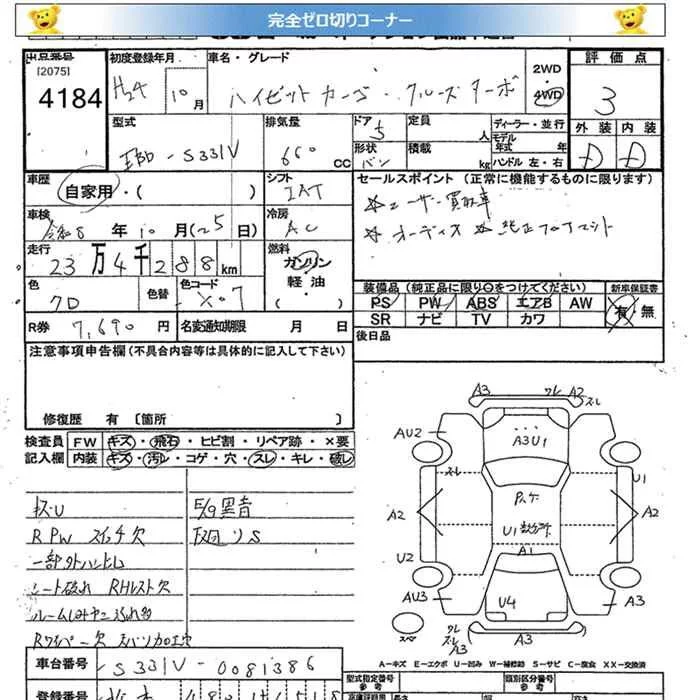 完全ゼロ切りコーナー
出品番号 初度登録年月 車名・グレード 2WD 評価点
[2075]
4184 H24 10月 ハイゼットカーゴ・クルーズターボ 4WD 3
型式 排気量 ドア 定員 ディーラー・並行 外装 内装
EBD-S331V 660 CC 5 人 モデル年式 年式
形状 積載 ハンドル 左・右 D D
バン kg
車歴 シフト セールスポイント (正常に機能するものに限ります)
自家用・( ) IAT ☆ユーザー買取車
車検 冷房 ☆オーディオ ☆純正フロアマット
令和8年10月(25日) AC
走行 燃料
23万4千288km ガソリン・軽油・( )
色 色替 色コード 装備品(純正品に限り○をつけてください) 新車保証書
クロ X07 PS PW ABS エアB AW 有・無
R券 7,690円 名変通知期限 月 日 SR ナビ TV カワ
後日品
注意事項申告欄(不具合内容等は具体的に記入して下さい)
修復歴 有 〔箇所 〕
検査員 FW キズ・飛石・ヒビ割・リペア跡・×要
記入欄 内装 キズ・汚レ・コゲ・穴・スレ・キレ・破レ
キズ・U E/g異音
R PW スイッチ欠 下回りS
一部外ハンヒム
シート破れ RHレスト欠
ルーム
Rワイパー欠
車台番号 S331V-0081386
登録番号
A3 ワレ A2 スレ
AU2 A3U1
スレ U1
A2 A2
U1
A1
U2 A3
AU3 U4 A3
スペア ワレ スレ A3
A-キズ E-エクボ U-凹み W-補修跡 S-サビ C-腐食 XX-交換済
型式指定番号 参考 類別区分番号 参考